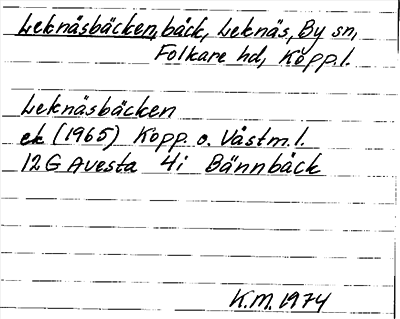 Leknäsbäcken, bäck, Leknäs, By sn,
Folkare hd, Kopp.l.
Leknäsbäcken
ek (1965) Kopp. o. Västm.l.
12G Avesta 4i Bännbäck
K.M. 1974